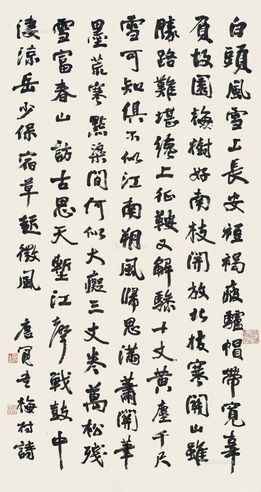 白頭風雪上長安裋褐疲驢帽帶寬辜
負故園梅樹好南枝開放北枝寒關山雖
勝路難堪纔上征鞍又解驂十丈黃塵千尺
雪可知俱不似江南朔風歸思滿蕭關筆
墨荒寒點染間何似大癡三丈卷萬松殘
雪富春山訪古思天塹江聲戰鼓中
淒涼岳少保宿草起微風
書梅村詩